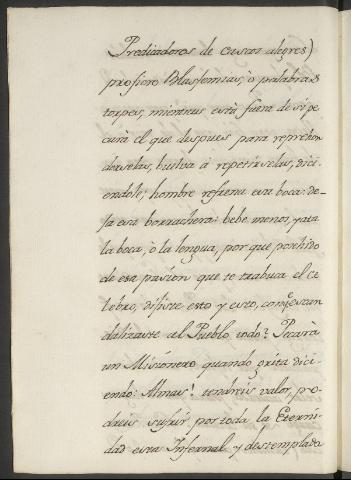 Predicadores de cascos alegres)
profiere Blasfemias, ò palabras
torpes, mientras està fuera de si pe
carà el que despues para reprehen
derselas, buelva à repetirselas, dici
endole; hombre refrena esa boca: de-
ja esa borrachera: bebe menos, y ata
la boca, ò la lengua, por que posehido
de esa pasion que te trabuca el ce
lebro, dijiste esto y esto, con q.e escan
dalizaste al Pueblo todo? Pecarà
un Misionero quando grita dici
endo: Almas! tendreis valor, po-
dreis sufrir por toda la Eterni-
dad esta Infernal y destemplada